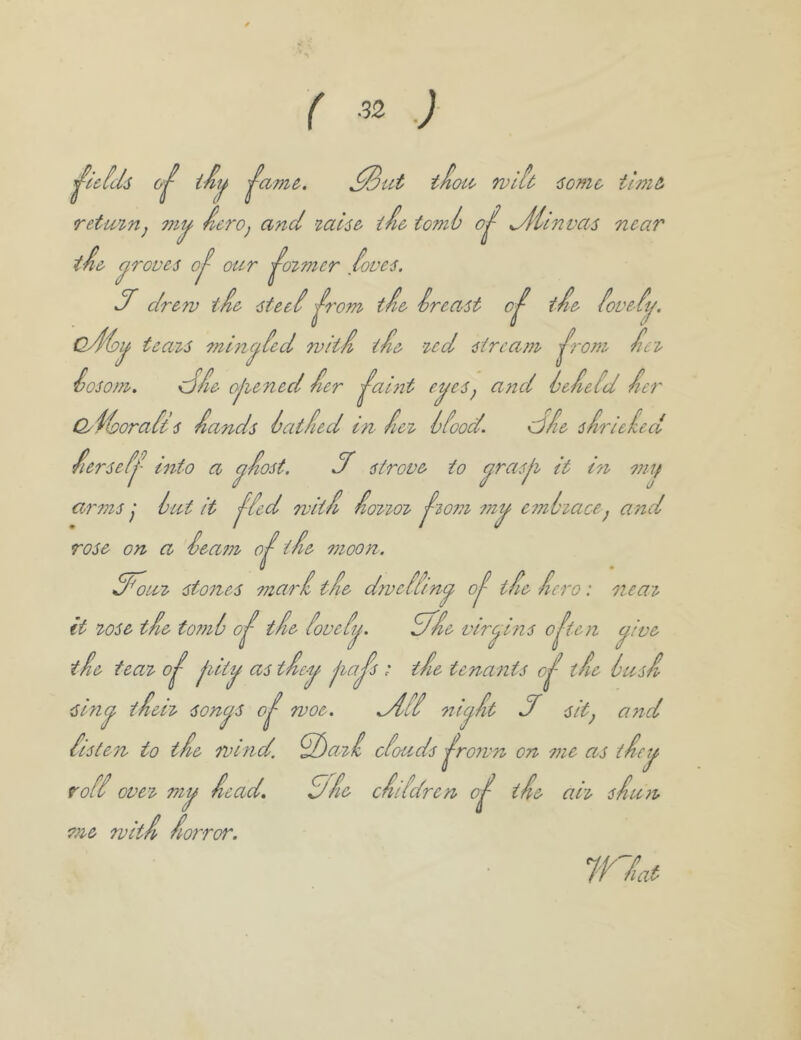 ( 32 )
fields of thy fame. But thou wilt some time
return, my hero, and raise the tomb of Minvas near
the groves of our former loves.
I drew the steel from the breast of the lovely.
My tears mingled with the red stream from her
bosom. She opened her faint eyes, and beheld her
Morali's hands bathed in her blood. She shrieked
herself into a ghost. I strove to grasp it in my
arms; but it fled with horror from my embrace, and
rose on a beam of the moon.
Four stones mark the dwelling of the hero: near
it rose the tomb of the lovely. The virgins often give
the tear of pity as they paſs: the tenants of the bush
sing their songs of woe. All night I sit, and
listen to the wind. Dark clouds frown on me as they
roll over my head. The children of the air shun
me with horror.
What